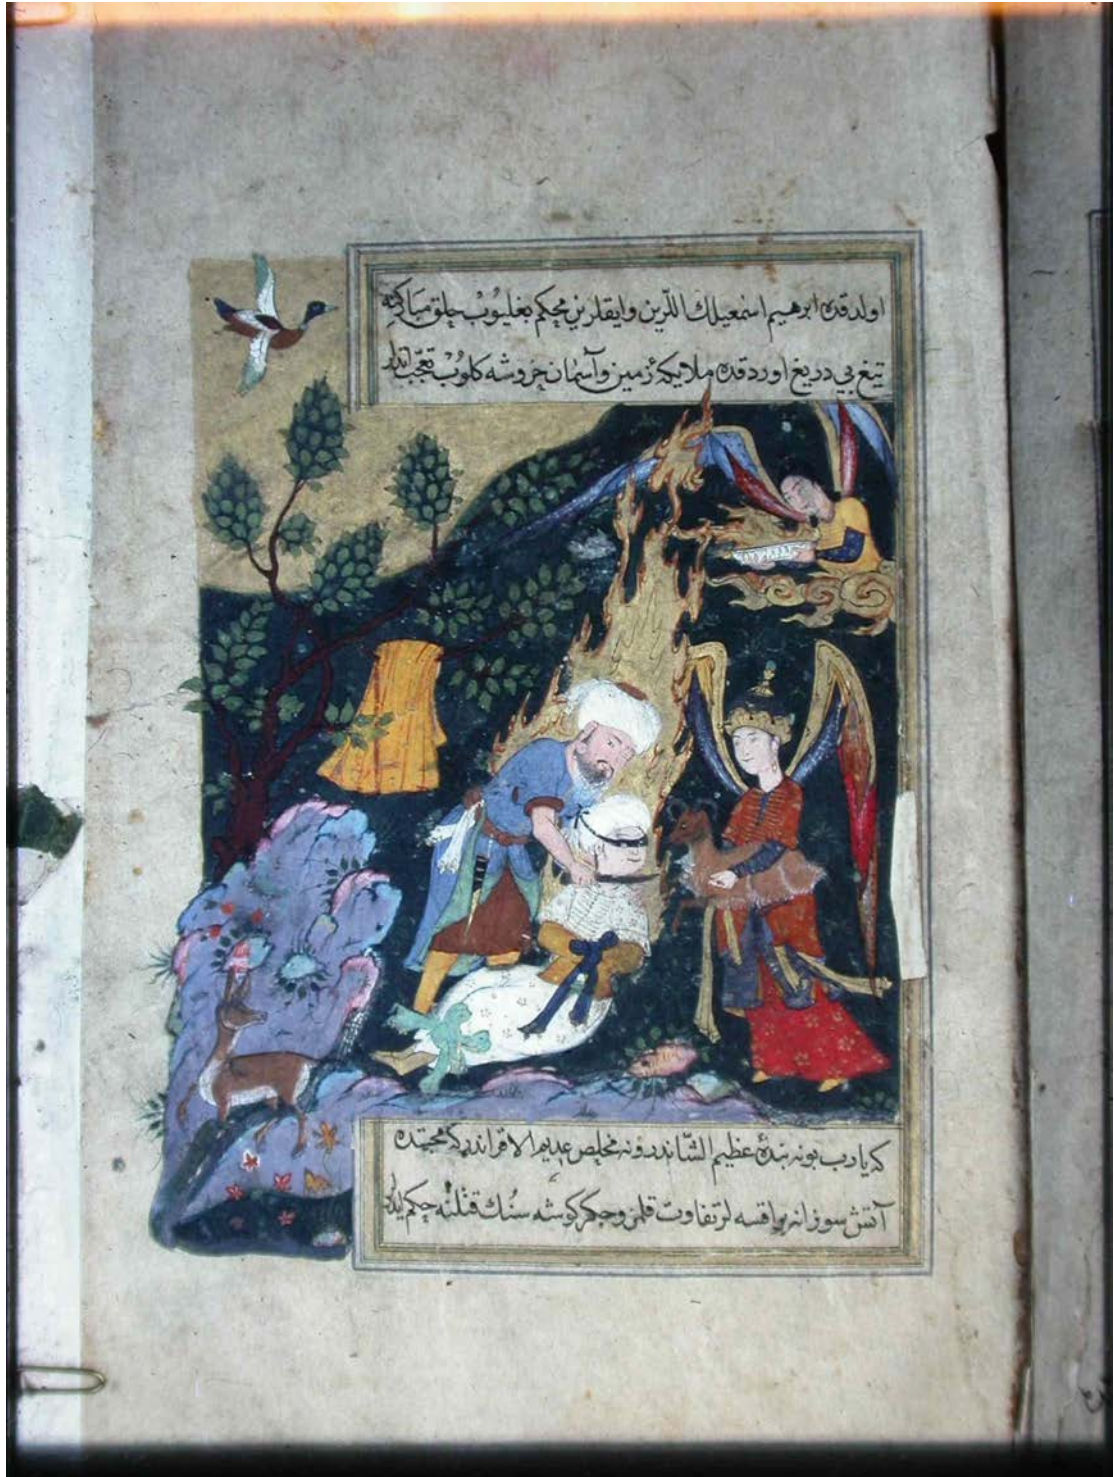 اولدقده ابرهیم اسمعیلك اللرین وایقلرین محکم بغلیوب حلق مبارکنه
تیغ بی دریغ اوردقده ملایکهٔ زمین وآسمان خروشه کلوب تعجب اتدلر
که یارب بو نه بندهٔ عظیم الشاندر و نه مخلص عدیم الاقراندر که محبتده
آتش سوزانه براقسه لر تفاوت قلمز وجکر کوشه سنك قتلنه حکم